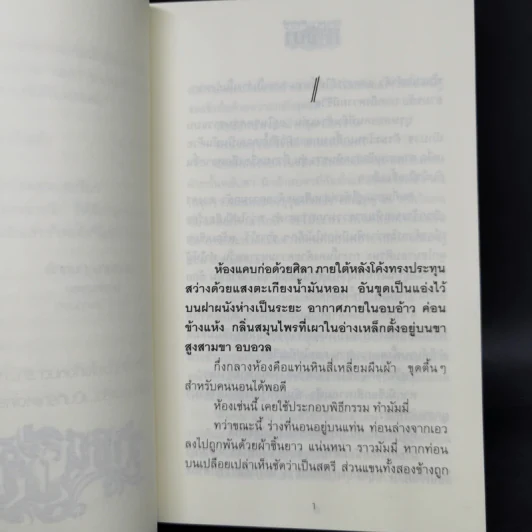 ห้องแคบก่อด้วยศิลา ภายใต้หลังโค้งทรงประทุน
สว่างด้วยแสงตะเกียงน้ำมันหอม อันขุดเป็นแอ่งไว้
บนฝาผนังห่างเป็นระยะ อากาศภายในอบอ้าว ค่อน
ข้างแห้ง กลิ่นสมุนไพรที่เผาในอ่างเหล็กตั้งอยู่บนขา
สูงสามขา อบอวล
กึ่งกลางห้องคือแท่นหินสี่เหลี่ยมผืนผ้า ขุดตื้นๆ
สำหรับคนนอนได้พอดี
ห้องเช่นนี้ เคยใช้ประกอบพิธีกรรม ทำมัมมี่
ทว่าขณะนี้ ร่างที่นอนอยู่บนแท่น ท่อนล่างจากเอว
ลงไปถูกพันด้วยผ้าชิ้นยาว แน่นหนา ราวมัมมี่ หากท่อน
บนเปลือยเปล่าเห็นชัดว่าเป็นสตรี ส่วนแขนทั้งสองข้างถูก
1